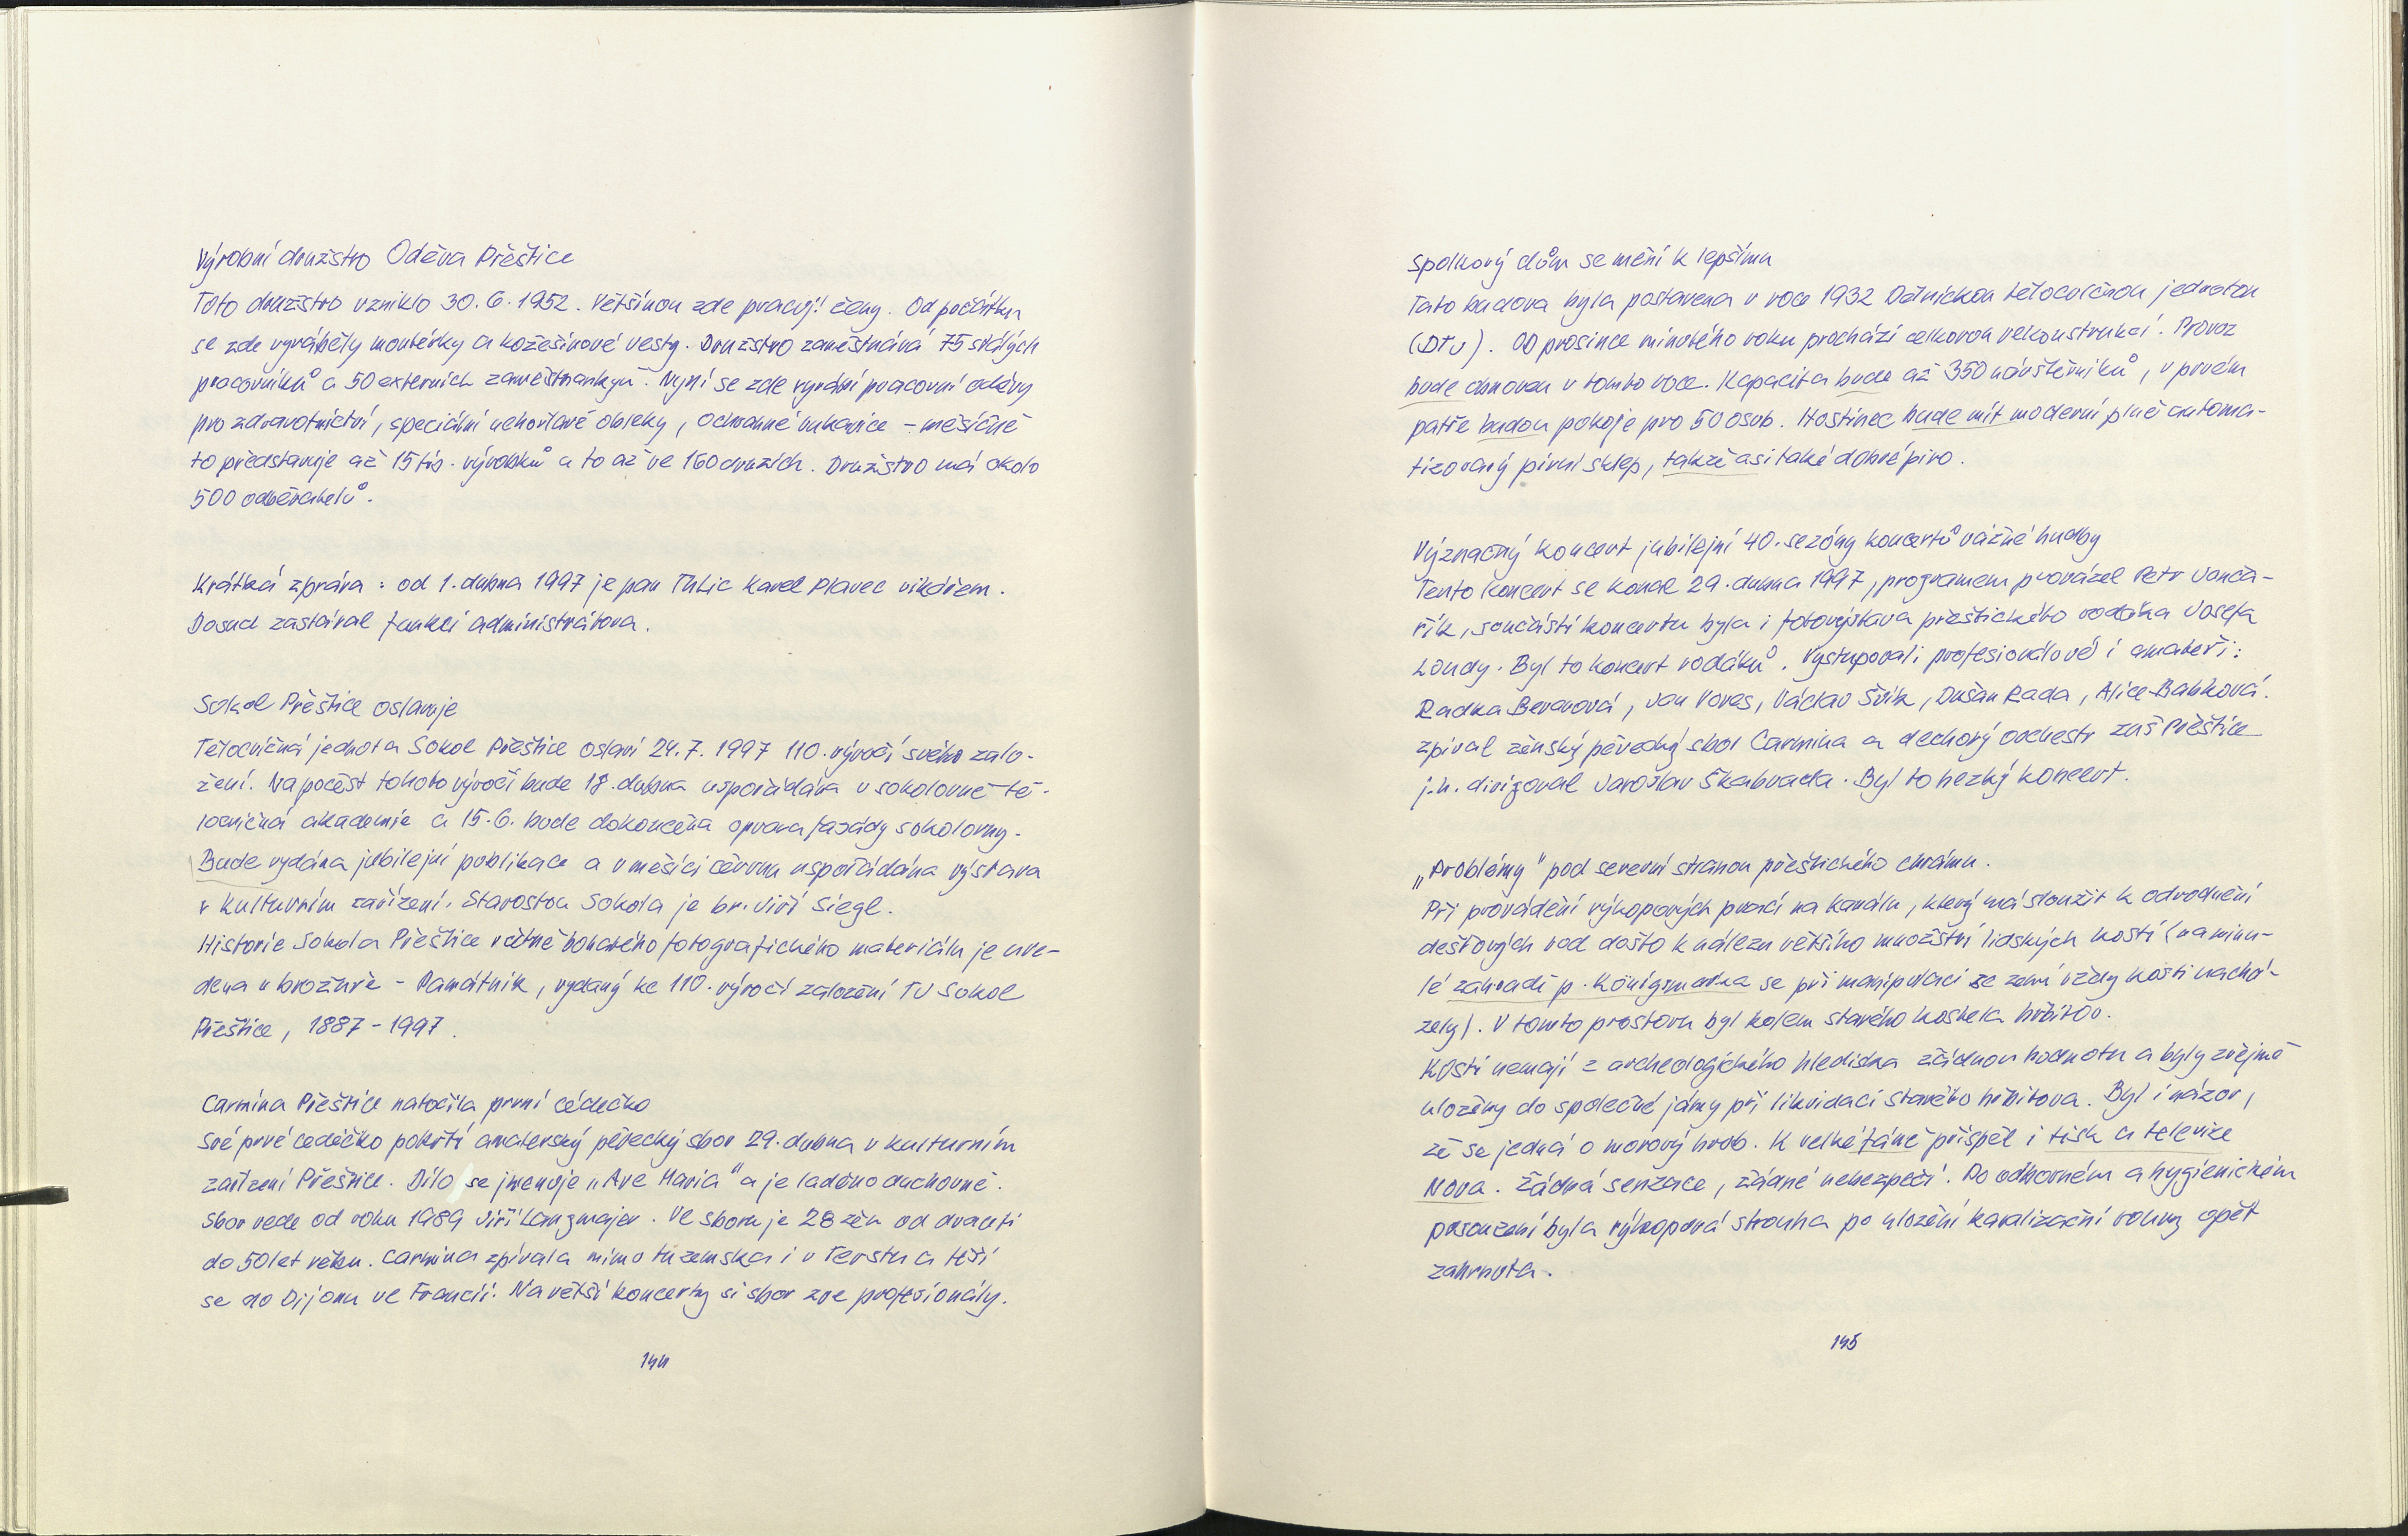 Výrobní družstvo Oděva Přeštice
Toto družstvo vzniklo 30.6.1952. Většinou zde pracují ženy. Od počátku
se zde vyráběly montérky a kožešinové vesty. Družstvo zaměstnává 75 stálých
pracovníků a 50 externích zaměstnankyň. Nyní se zde vyrábí pracovní oděvy
pro zdravotnictví, speciální nehořlavé obleky, ochranné rukavice – měsíčně
to představuje až 15 tis. výrobků a to až ve 160 druzích. Družstvo má okolo
500 odběratelů.
Krátká zpráva: od 1. dubna 1997 je pan ThLic Karel Plavec vikářem.
Dosud zastával funkci administrátora.
Sokol Přeštice oslavuje
Tělocvičná jednota Sokol Přeštice oslaví 24.7.1997 110. výročí svého zalo-
žení. Na počest tohoto výročí bude 18. dubna uspořádána v sokolovně tě-
locvičná akademie a 15.6. bude dokončena oprava fasády sokolovny.
Bude vydána jubilejní publikace a v měsíci červnu uspořádána výstava
v kulturním zařízení. Starostou Sokola je br. Jiří Siegl.
Historie Sokola Přeštice včetně bohatého fotografického materiálu je uve-
dena v brožuře – Památník, vydaný ke 110. výročí založení TJ Sokol
Přeštice, 1887-1997.
Carmina Přeštice natočila první cédéčko
Své prvé cedéčko pokřtí amaterský pěvecký sbor 29. dubna v kulturním
zařízení Přeštice. Dílo se jmenuje „Ave Maria" a je laděno duchovně.
Sbor vede od roku 1989 Jiří Langmajer. Ve sboru je 28 žen od dvaceti
do 50 let věku. Carmina zpívala mimo tuzemska i v Terstu a těší
se do Dijonu ve Francii. Na větší koncerty si sbor zve profesionály.
144
Spolkový dům se mění k lepšímu
Tato budova byla postavena v roce 1932 Dělnickou tělocvičnou jednotou
(DTJ). Od prosince minulého roku prochází celkovou rekonstrukcí. Provoz
bude obnoven v tomto roce. Kapacita bude až 350 návštěvníků, v prvém
patře budou pokoje pro 50 osob. Hostinec bude mít moderní plně automa-
tizovaný pivní sklep, takže asi také dobré pivo.
Význačný koncert jubilejní 40. sezóny koncertů vážné hudby
Tento koncert se konal 29. dubna 1997, programem provázel Petr Janča-
řík, součástí koncertu byla i fotovýstava přeštického rodáka Josefa
Loudy. Byl to koncert rodáků. Vystupovali profesionálové i amateři:
Radka Beranová, Jan Voves, Václav Švík, Dušan Rada, Alice Babková.
zpíval ženský pěvecký sbor Carmina a dechový orchestr ZUŠ Přeštice
j.h. dirigoval Jaroslav Škabrada. Byl to hezký koncert.
„Problémy" pod severní stranou přeštického chrámu.
Při provádění výkopových prací na kanálu, který má sloužit k odvodnění
dešťových vod došlo k nálezu většího množství lidských kostí (na minu-
lé zahradě p. Königsmarka se při manipulaci se zemí vždy kosti nachá-
zely). V tomto prostoru byl kolem starého kostela hřbitov.
Kosti nemají z archeologického hlediska žádnou hodnotu a byly zřejmě
uloženy do společné jámy při likvidaci starého hřbitova. Byl i názor,
že se jedná o morový hrob. K velké fámě přispěl i tisk a televize
Nova. Žádná senzace, žádné nebezpečí. Po odborném a hygienickém
posouzení byla výkopová strouha po uložení kanalizační roury opět
zahrnuta.
145